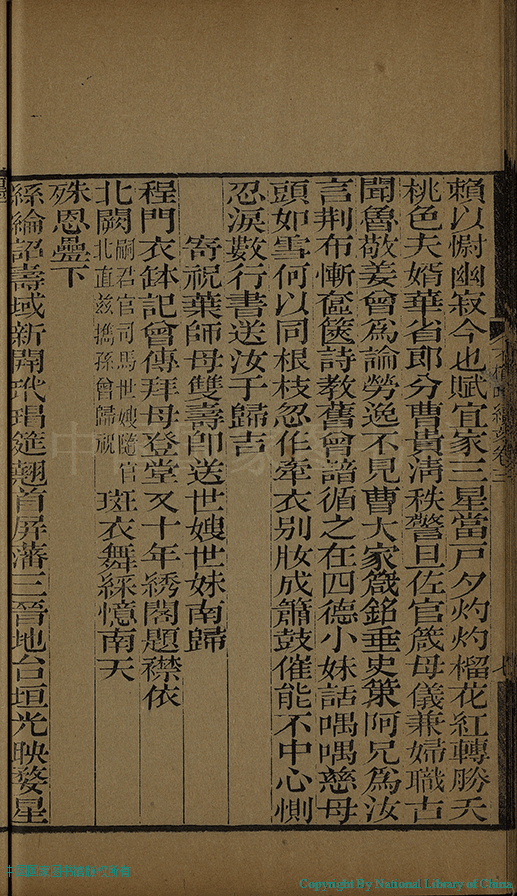 賴以慰幽寂今也賦宜家三星當戸夕灼灼榴花紅轉勝夭
桃色夫婿華省郎分曹貴清秩警旦佐官箴母儀兼婦職古
聞魯敬姜曾爲論勞逸不見曹大家箴銘垂史策阿兄爲汝
言荆布慚奩篋詩教舊曾諳循之在四德小妹話喁喁慈母
頭如雪何以同根枝忽作牽衣别妝成簫鼓催能不中心惻
忍淚數行書送汝于歸吉
寄祝葉師母雙壽即送世嫂世妹南歸
程門衣鉢記曾傳拜母登堂又十年綉閣題襟依
北闕嗣君官司馬世嫂隨官北直兹擕孫曾歸祝斑衣舞綵憶南天
殊恩疊下
絲綸詔壽域新開玳瑁筵翹首屏藩三晉地台垣光映婺星
Copyright By National Library of China